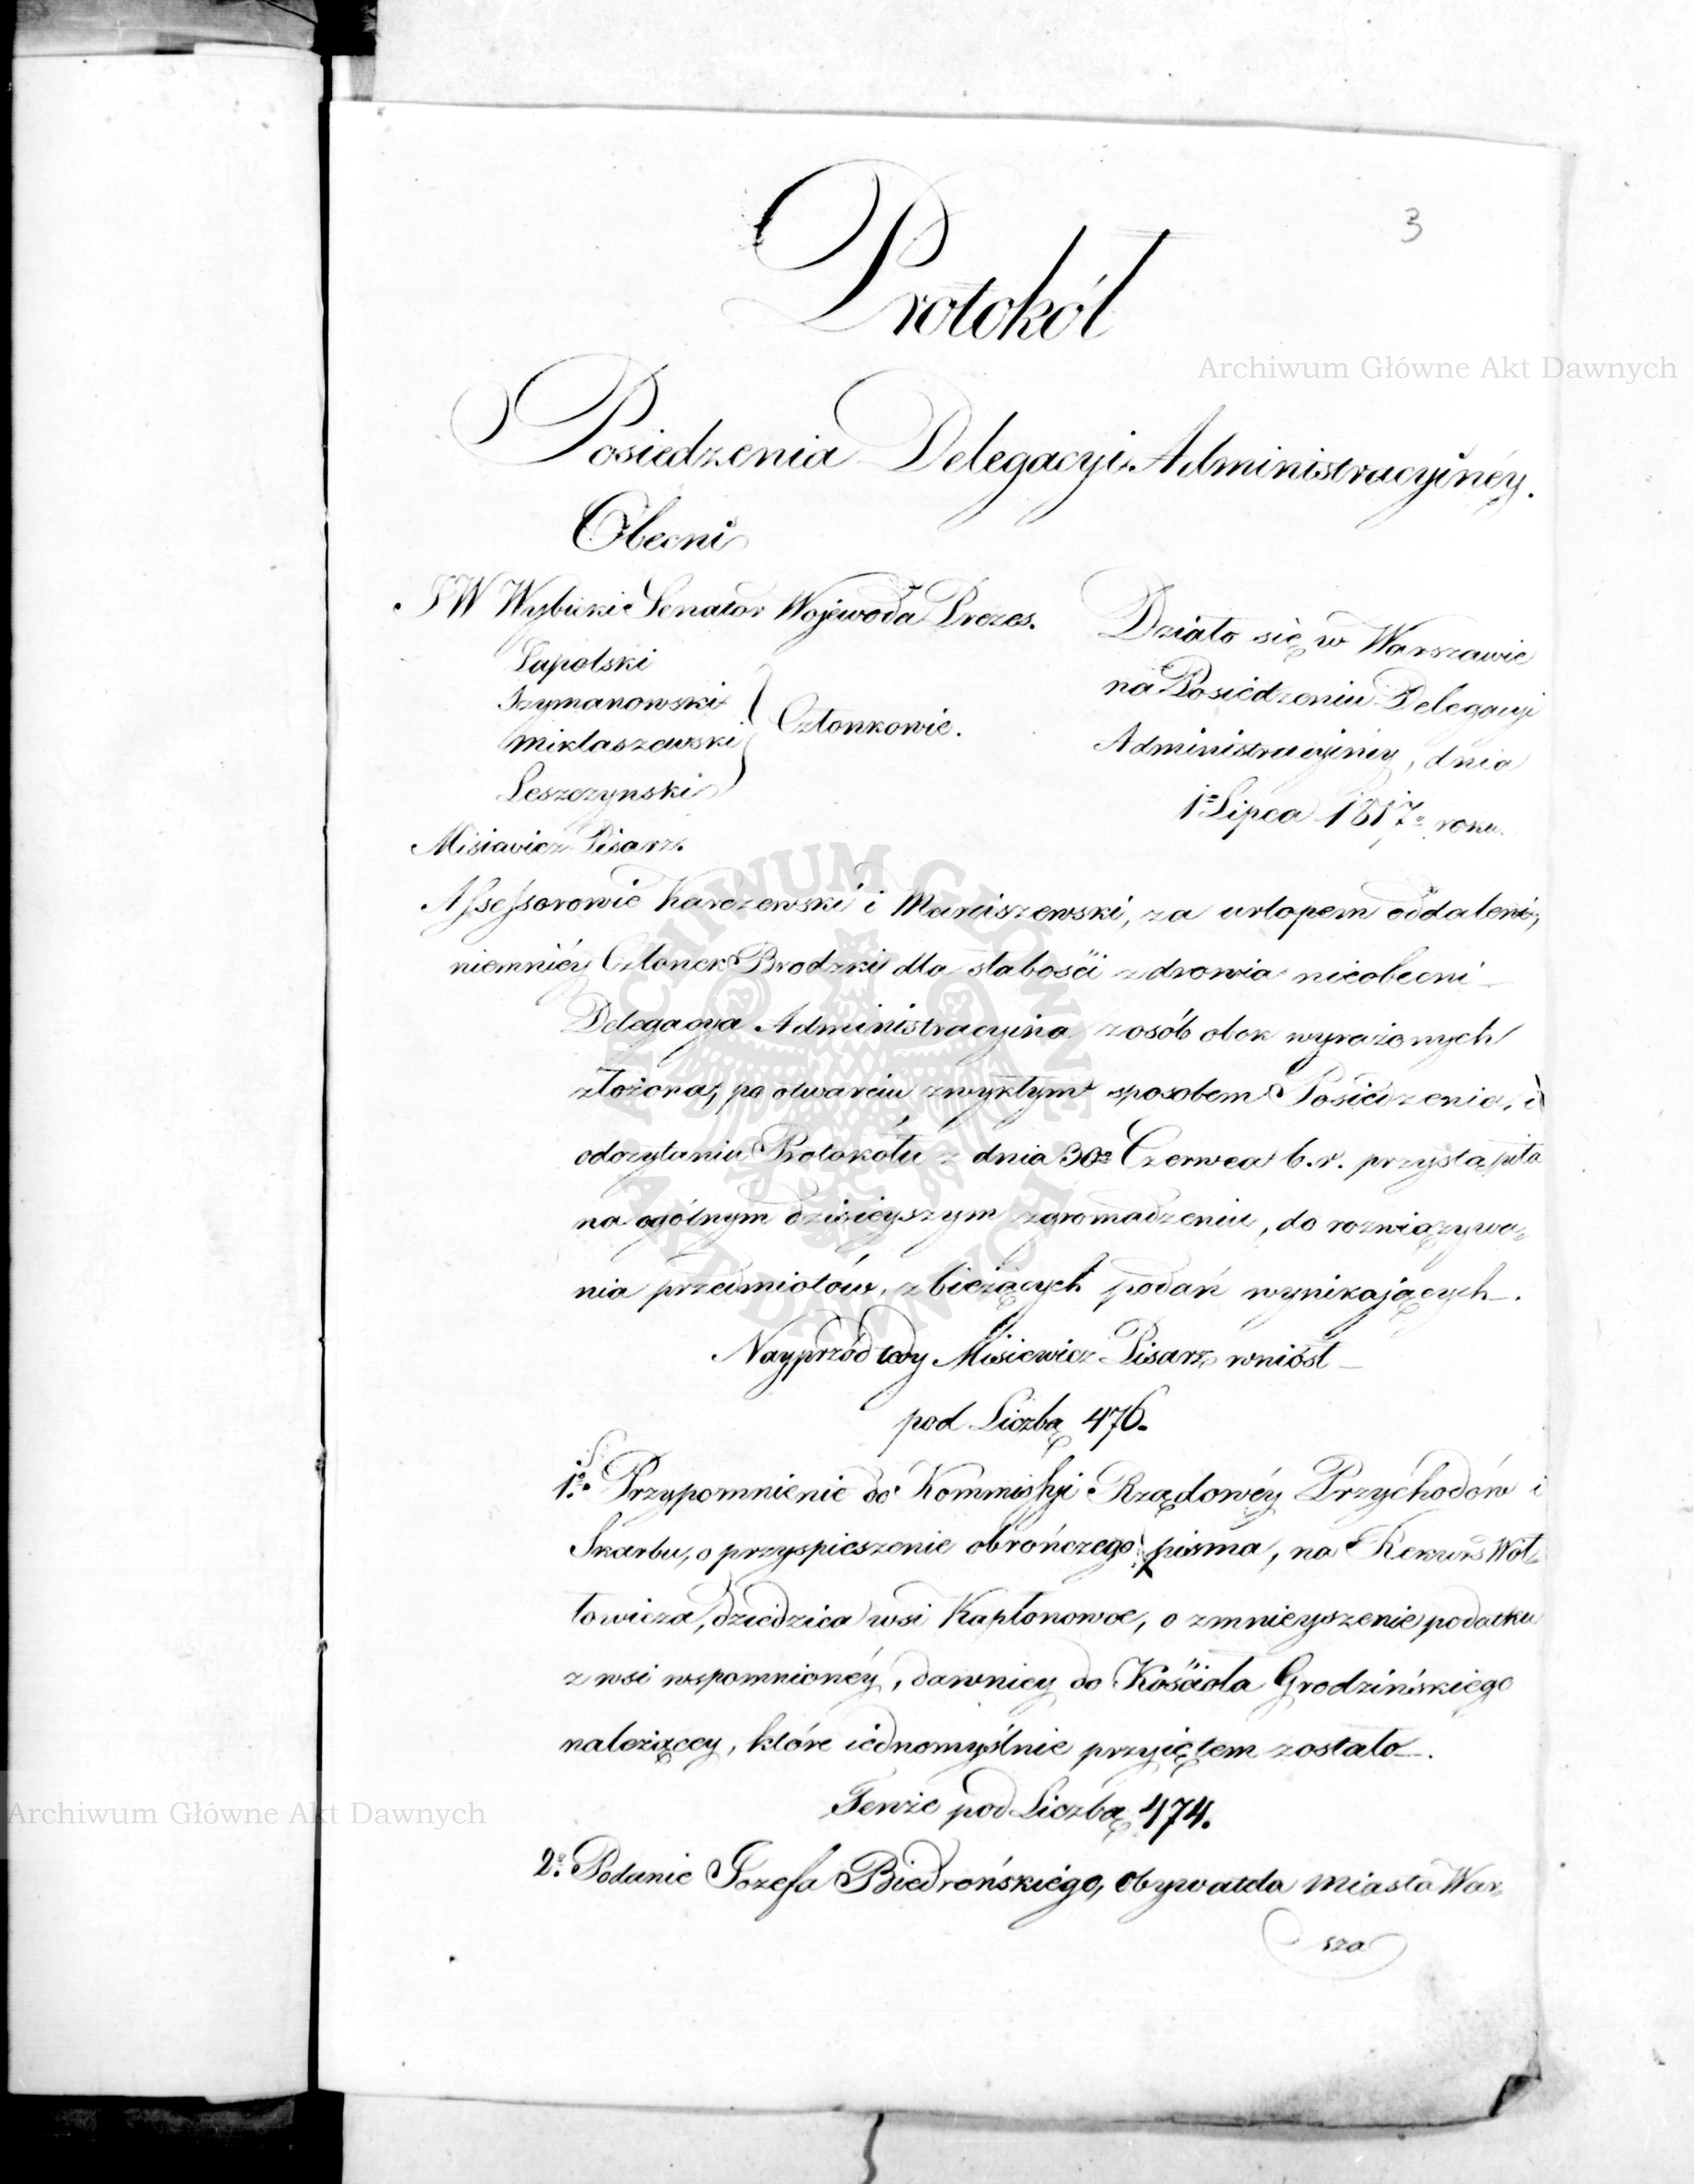 3
Protokół
Posiedzenia Delegacyi Administracyinéy.
Obecni
JW Wybicki Senator Wojewoda Prezes.
Łapolski
Szymanowski
Miklaszewski
Leszczynski
Członkowie.
Misiewicz Pisarz.
Działo się w Warszawie
na Posiedzeniu Delegacyi
Administracyinéy, dnia
1o Lipca 1817o roku.
Assessorowie Karczewski i Marciszewski, za urlopem oddaleni,
niemniéy Członek Brodzki dla słabości zdrowia nieobecni
Delegacya Administracyina z osób obok wyrażonych
złożona, po otwarciu zwykłym sposobem Posiedzenia, i
odczytaniu Protokółu z dnia 30o Czerwca b. r. przystąpiła
na ogólnym dzisieyszym zgromadzeniu, do rozwiązywa=
nia przedmiotów, z bieżących podań wynikających.
Nayprzód tedy Misiewicz Pisarz wniósł
pod Liczbą 476.
1o. Przypomnienie do Kommissyi Rządowéy Przychodów i
Skarbu, o przyspieszenie obrończego pisma, na Rekurs Woł=
łowicza, dziedzica wsi Kapłonowce, o zmnieyszenie podatku
z wsi wspomnionéy, dawniey do Kościoła Grodzińskiego
należącey, które iednomyślnie przyiętem zostało.
Tenże pod Liczbą 474.
2o. Podanie Jozefa Biedrońskiego, obywatela miasta War=
sza
Archiwum Główne Akt Dawnych
Archiwum Główne Akt Dawnych
ARCHIWUM GŁÓWNE AKT DAWNYCH